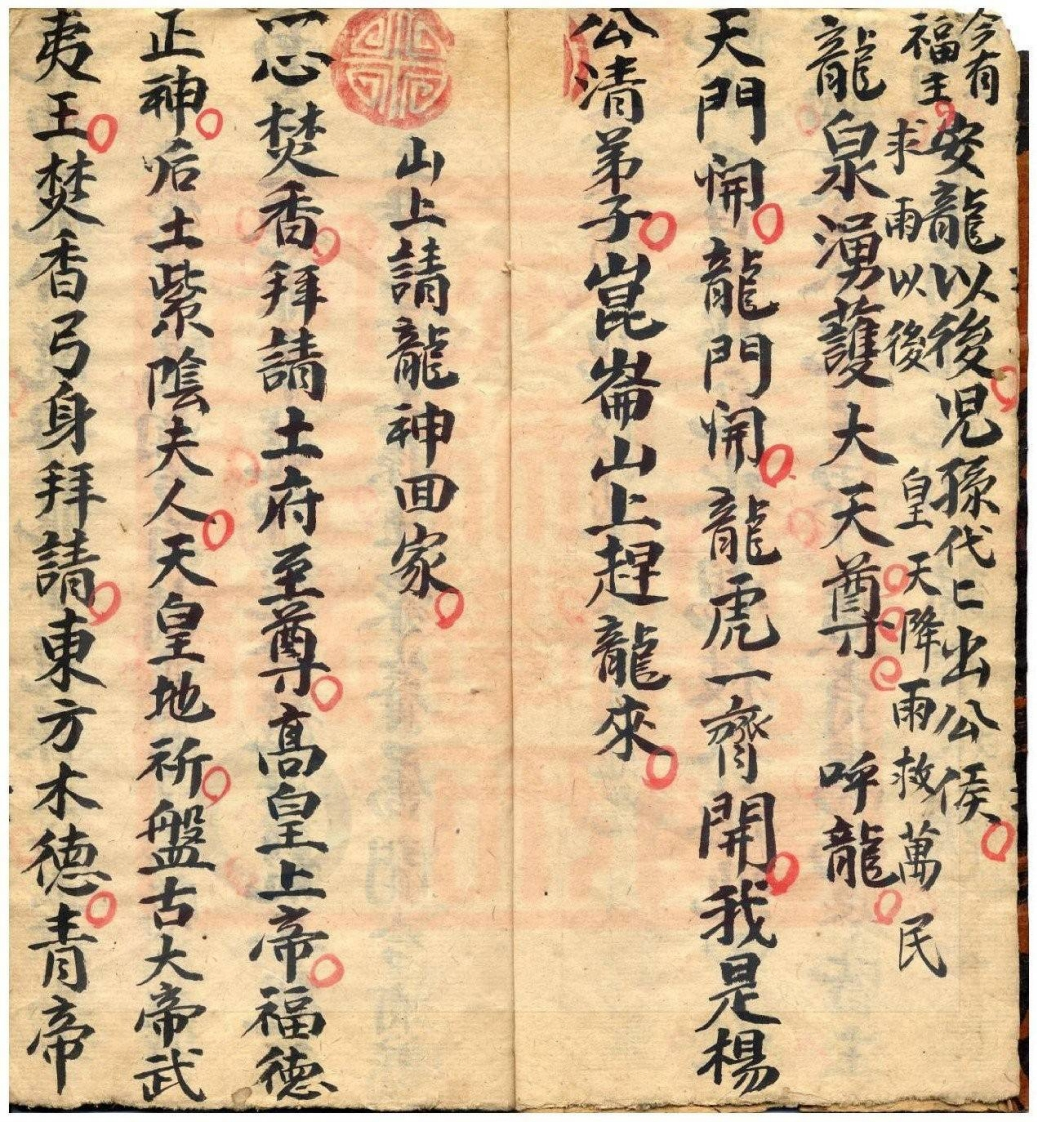 今有
福主
安龍以後兒孫代〻出公侯
求雨以後 皇天降雨救萬民
龍泉湧護大天尊 呼龍
天門開龍門開龍虎一齊開我是楊
公清弟子崑崙山上趕龍來
山上請龍神回家
一心焚香拜請土府至尊高皇上帝福德
正神后土紫陰夫人天皇地祈盤古大帝武
夷王焚香弓身拜請東方木德青帝